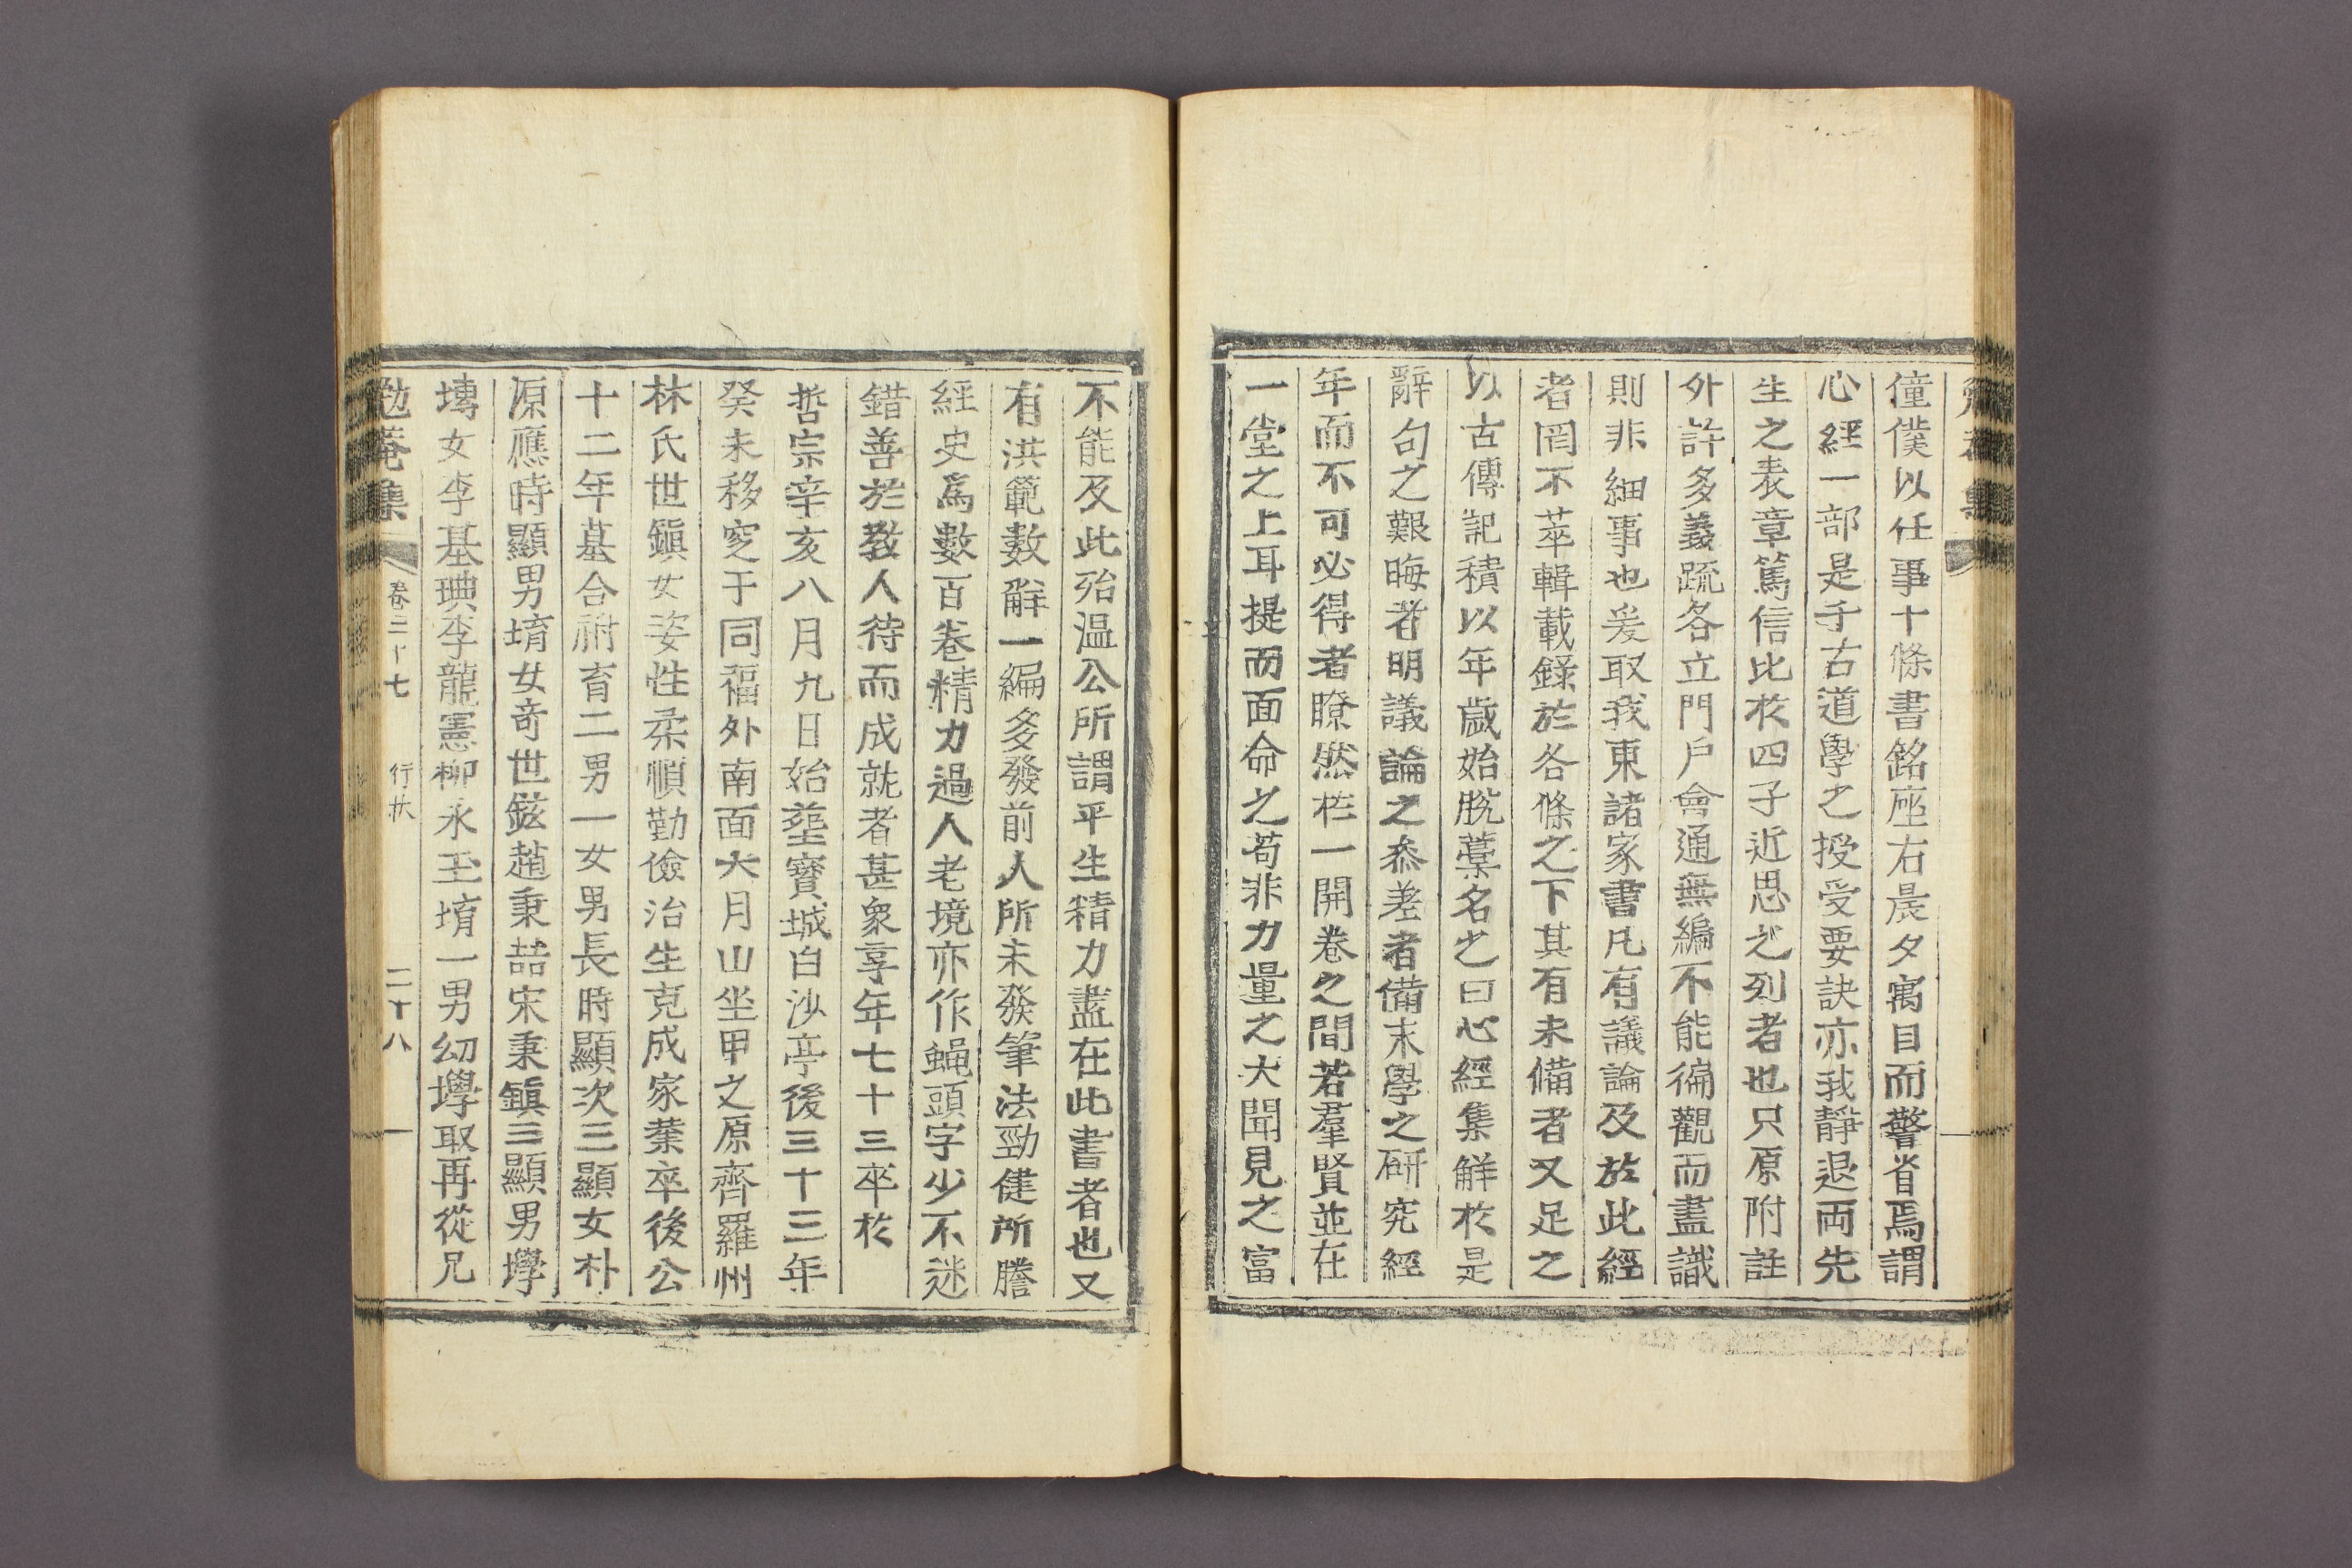 僮僕以任事十條書銘座右晨夕寓目而警省焉謂
心經一部是千古道學之授受要訣亦我靜退兩先
生之表章篤信比於四子近思之列者也只原附註
外許多義疏各立門戶會通無編不能徧觀而盡識
則非細事也爰取我東諸家書凡有議論及於此經
者罔不萃輯載錄於各條之下其有未備者又足之
以古傳記積以年歲始脫藁名之曰心經集解於是
辭句之艱晦者明議論之叅差者備末學之硏究經
年而不可必得者瞭然在一開卷之間若羣賢並在
一堂之上耳提而面命之苟非力量之大聞見之富
不能及此殆溫公所謂平生精力盡在此書者也又
有洪範數解一編多發前人所未發筆法勁健所謄
經史爲數百卷精力過人老境亦作蠅頭字少不迷
錯善於敎人待而成就者甚衆享年七十三卒於
哲宗辛亥八月九日始葬寶城白沙亭後三十三年
癸未移窆于同福外南面大月山坐甲之原齊羅州
林氏世鎭女姿性柔順勤儉治生克成家業卒後公
十二年墓合祔育二男一女男長時顯次三顯女朴
源應時顯男堉女奇世鉉趙秉喆宋秉鎭三顯男㙾
塼女李基琠李龍憲柳永玉堉一男幼㙾取再從兄
勉菴集 卷二十七 行狀 二十八